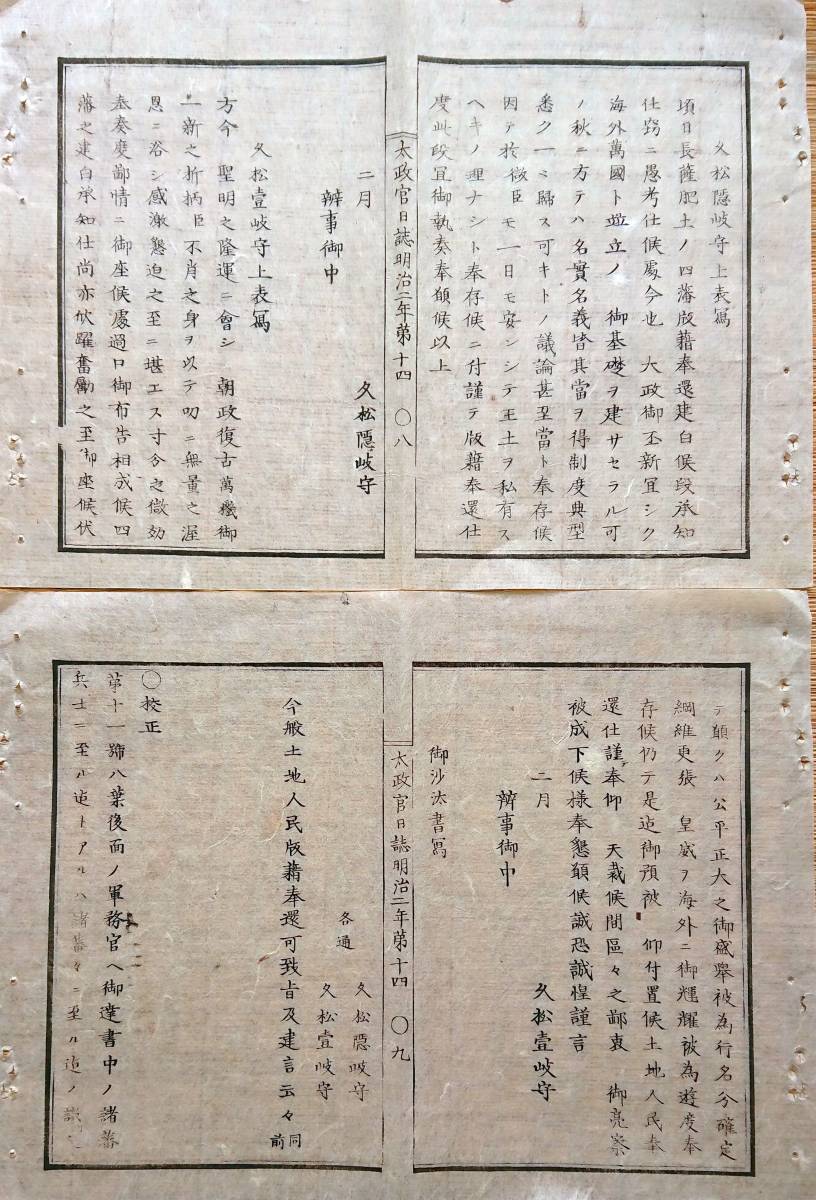 久松隠岐守上表寫
頃日長薩肥土ノ四藩版籍奉還建白候段承知
仕竊ニ愚考仕候處今也 大政御丕新冝シク
海外萬國ト竝立ノ 御基礎ヲ建サセラル可
ノ秋ニ方テハ名實名義皆其當ヲ得制度典型
悉ク一ニ歸ス可キトノ議論甚至當ト奉存候
因テ於微臣モ一日モ安ンシテ王土ヲ私有ス
ヘキノ理ナシト奉存候ニ付謹テ版籍奉還仕
度此段冝御執奏奉願候以上
太政官日誌明治二年第十四 〇八
二月 久松隠岐守
辨事御中
久松壹岐守上表寫
方今 聖明之隆運ニ會シ 朝政復古萬機御
一新之折柄臣不肖之身ヲ以テ叨ニ無量之渥
恩ニ浴シ感激懇迫之至ニ堪エス寸分之微効
奉奏度鄙情ニ御座候處過日御布告相成候四
藩之建白承知仕尚亦欣躍奮勵之至御座候伏
テ願クハ公平正大之御盛擧被為行名分確定
綱維更張 皇威ヲ海外ニ御輝耀被為遊度奉
存候仍テ是迠御預被 仰付置候土地人民奉
還仕謹奉仰 天裁候間區々之鄙衷 御亮察
被成下候様奉懇願候誠恐誠惶謹言
二月 久松壹岐守
辨事御中
御沙汰書寫
太政官日誌明治二年第十四 〇九
久松隠岐守
各通
久松壹岐守
今般土地人民版籍奉還可致旨及建言云々同前
〇校正
第十一號八葉後面ノ軍務官ヘ御達書中ノ諸藩
兵士ニ至ル迠トアルハ諸藩々ニ至ル迠ノ